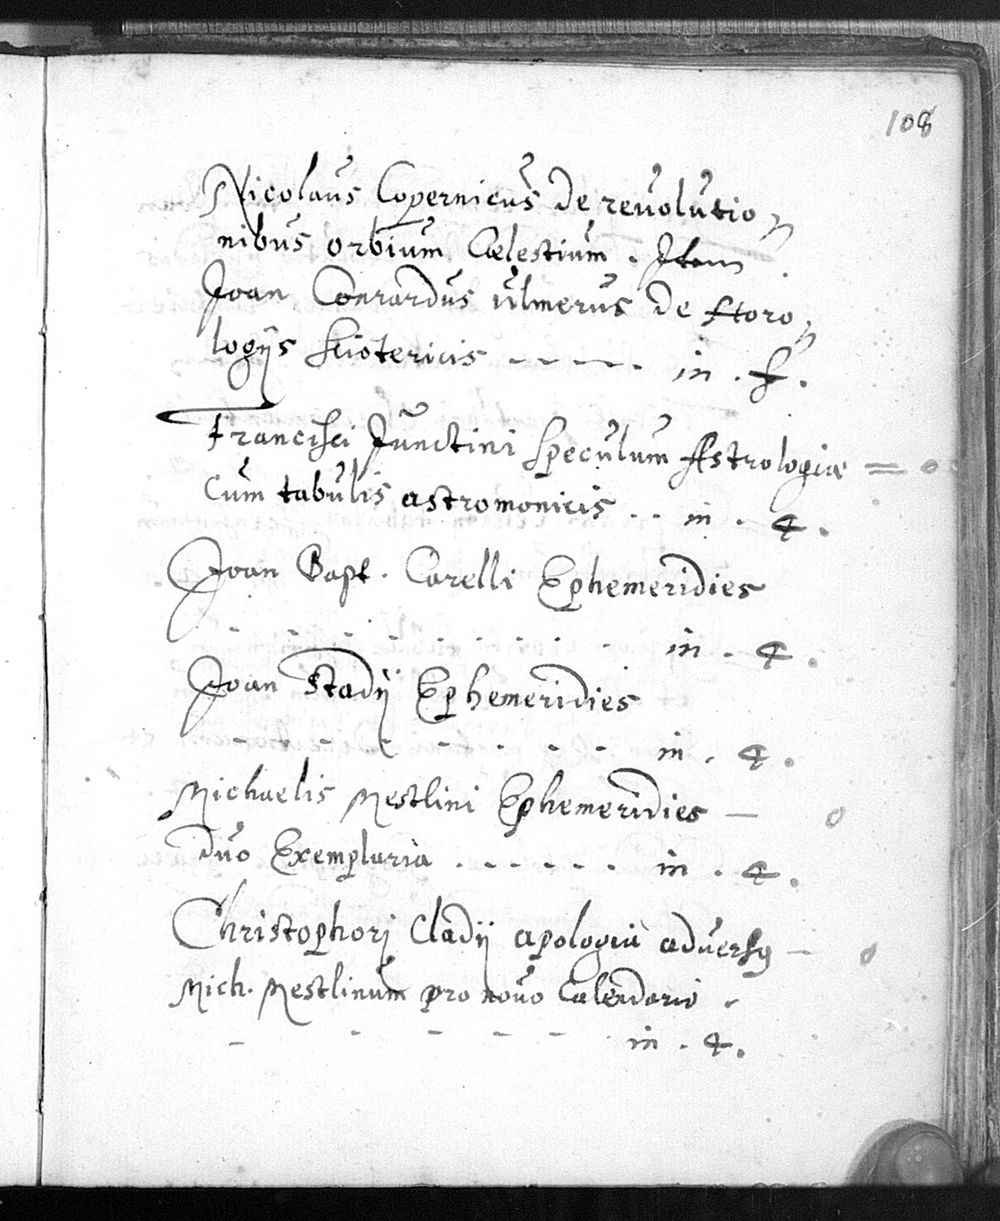 108
Nicolaus Copernicus de revolutio
nibus orbium Cœlestium. Item
Joan Conrardus Ulmerus de Horo
logijs sciotericis - - - - - in . f.
Francisci Junctini speculum Astrologiæ
Cum tabulis astromonicis . . in . 4.
Joan Bapt. Carelli Ephemeridies
- - - - - - - - in . 4.
Joan Stadij Ephemeridies
- - - - - - - in . 4.
Michaelis Mestlini Ephemeridies —
duo Exemplaria . - - - - . in . 4.
Christophorj Cladij apologia adversq —
Mich. Mestlinum pro novo Calendario .
- - - - - in . 4.